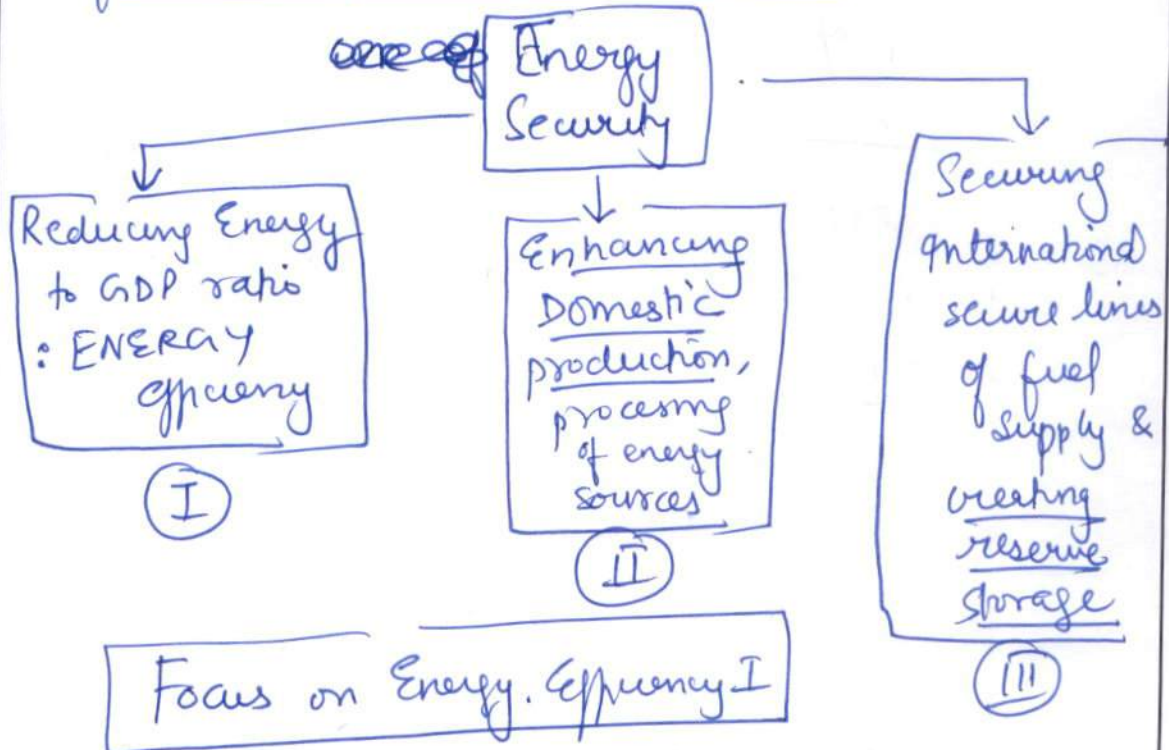 Energy
Security
Reducing Energy
to GDP ratio
: ENERGY
Efficiency
I
Enhancing
Domestic
production,
processing
of energy
sources
II
Securing
International
secure lines
of fuel
supply &
creating
reserve
storage
III
Focus on Energy. Efficiency I